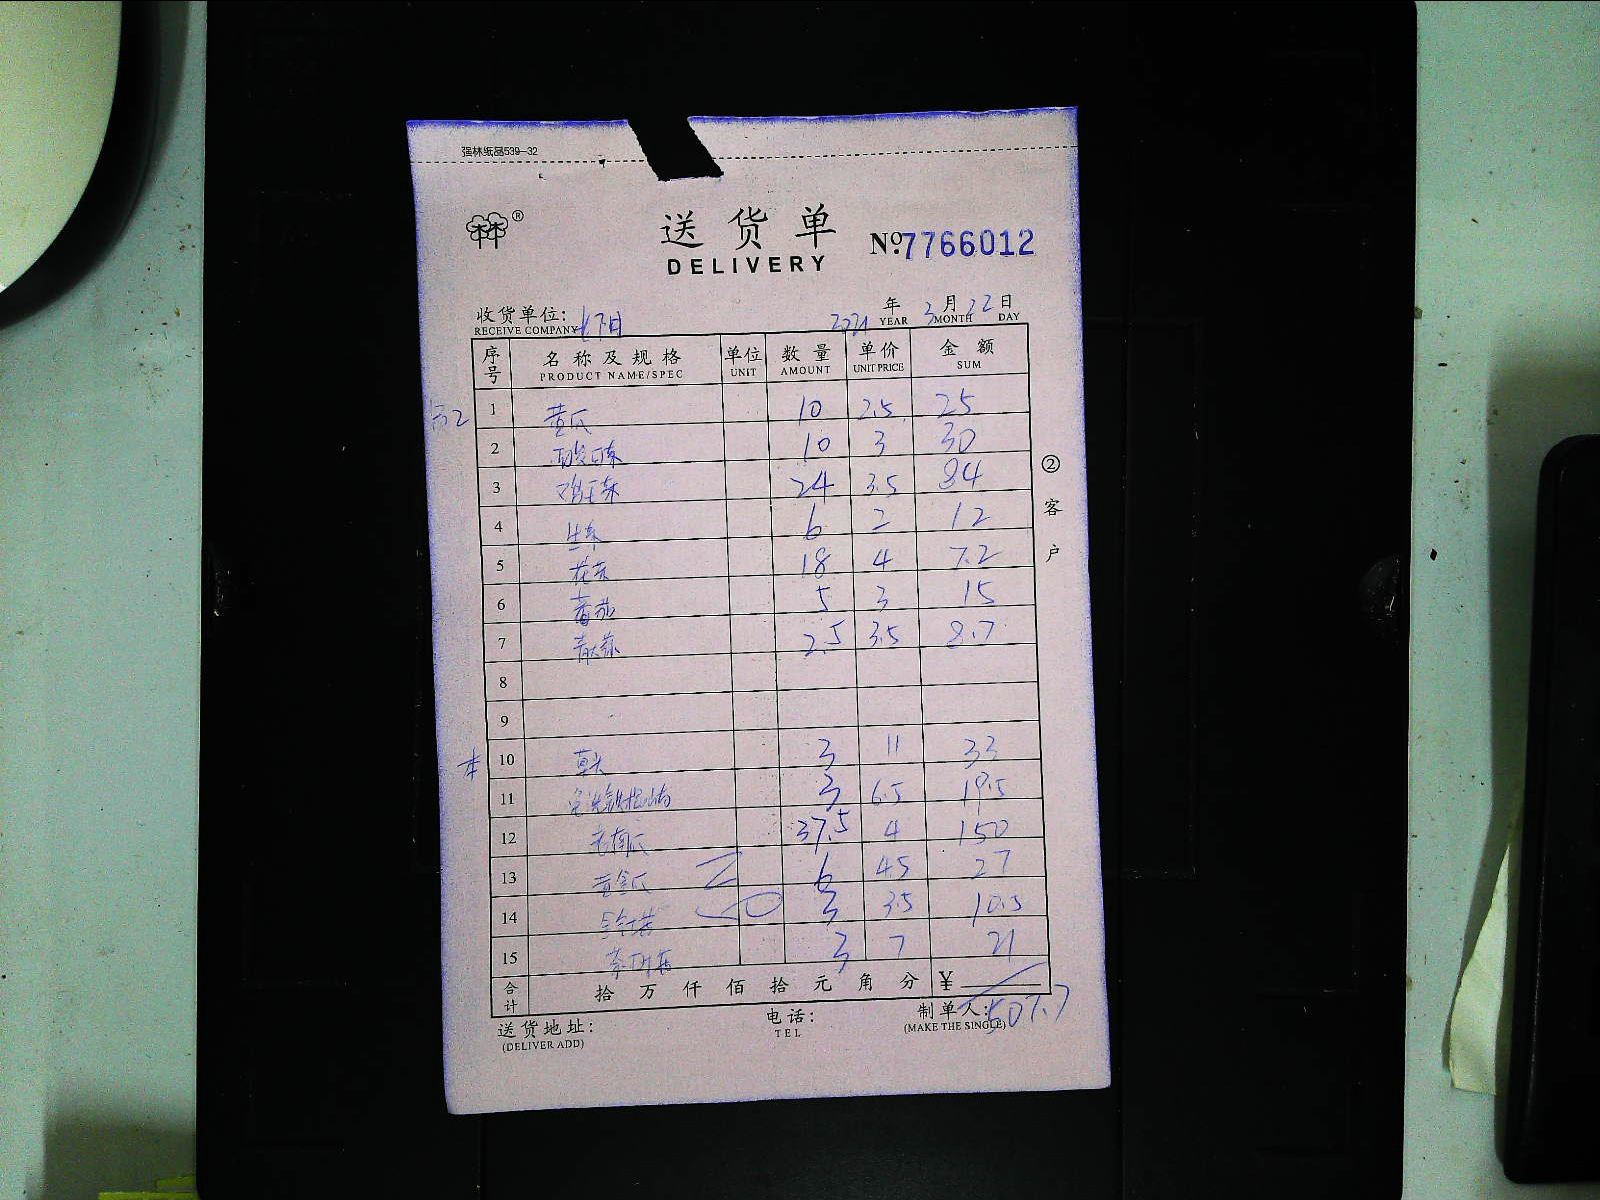 强林纸品539-32
送货单
DELIVERY
Nº 7766012
收货单位:
RECEIVE COMPANY
2021 年 3 月 22 日
YEAR MONTH DAY
序号 名称及规格 单位 数量 单价 金额
PRODUCT NAME/SPEC UNIT AMOUNT UNIT PRICE SUM
1 黄瓜 10 2.5 25
2 10 3 30
3 24 3.5 84
4 生菜 6 2 12
5 花菜 18 4 7.2
6 番茄 5 3 15
7 2.5 3.5 8.7
8
9
10 3 11 33
11 3 6.5 19.5
12 老南瓜 37.5 4 150
13 黄金瓜 6 45 27
14 3 3.5 10.5
15 3 7 21
合计 拾 万 仟 佰 拾 元 角 分 ¥
507.7
送货地址: 电话: 制单人:
(DELIVER ADD) TEL (MAKE THE SINGLE)
② 客户